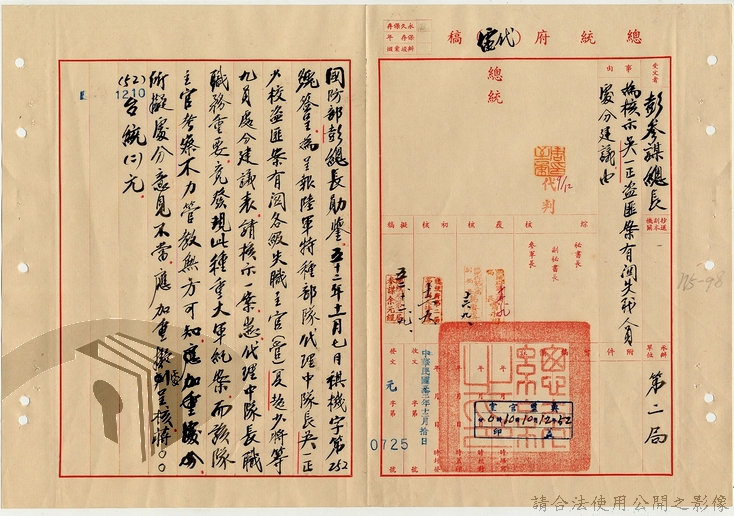 總統府(代電)稿
總統
受文者
彭參謀總長
事由
為核示吳一正盜匪案有關失職人員
處分建議由
代判
9/12
綜核
覆核
初核
擬稿
秘書長
副秘書長
參軍長
承辦單位
第二局
附件
收文 字第 號
發文 元 字第 號
中華民國五十二年十二月拾日
0725
175-98
國防部彭總長勛鑒五十二年十二月七日祺機字第252
號簽呈為呈報陸軍特種部隊代理中隊長吳一正
少校盜匪案有關各級失職主官(管)夏超少將等
九員處分建議表請核示一案悉代理中隊長職
職務重要竟發現此種重大軍紀案而該隊
主官考察不力管教無方可知應加重處分
所擬處分意見不當應加重擬呈核蔣○○
(52)1210台統(二)元
請合法使用公開之影像